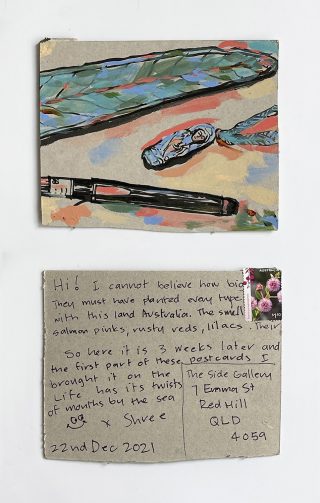 Hi! I cannot believe how
They must have planted every type
with this land Australia. The smell
salmon pinks, rusty reds, lilacs. Their
So here it is 3 weeks later and
the first part of these postcards I
brought it on the
Life has its twists
of months by the sea
x Shree
22nd Dec 2021
The Side Gallery
7 Emma St
Red Hill
QLD
4059